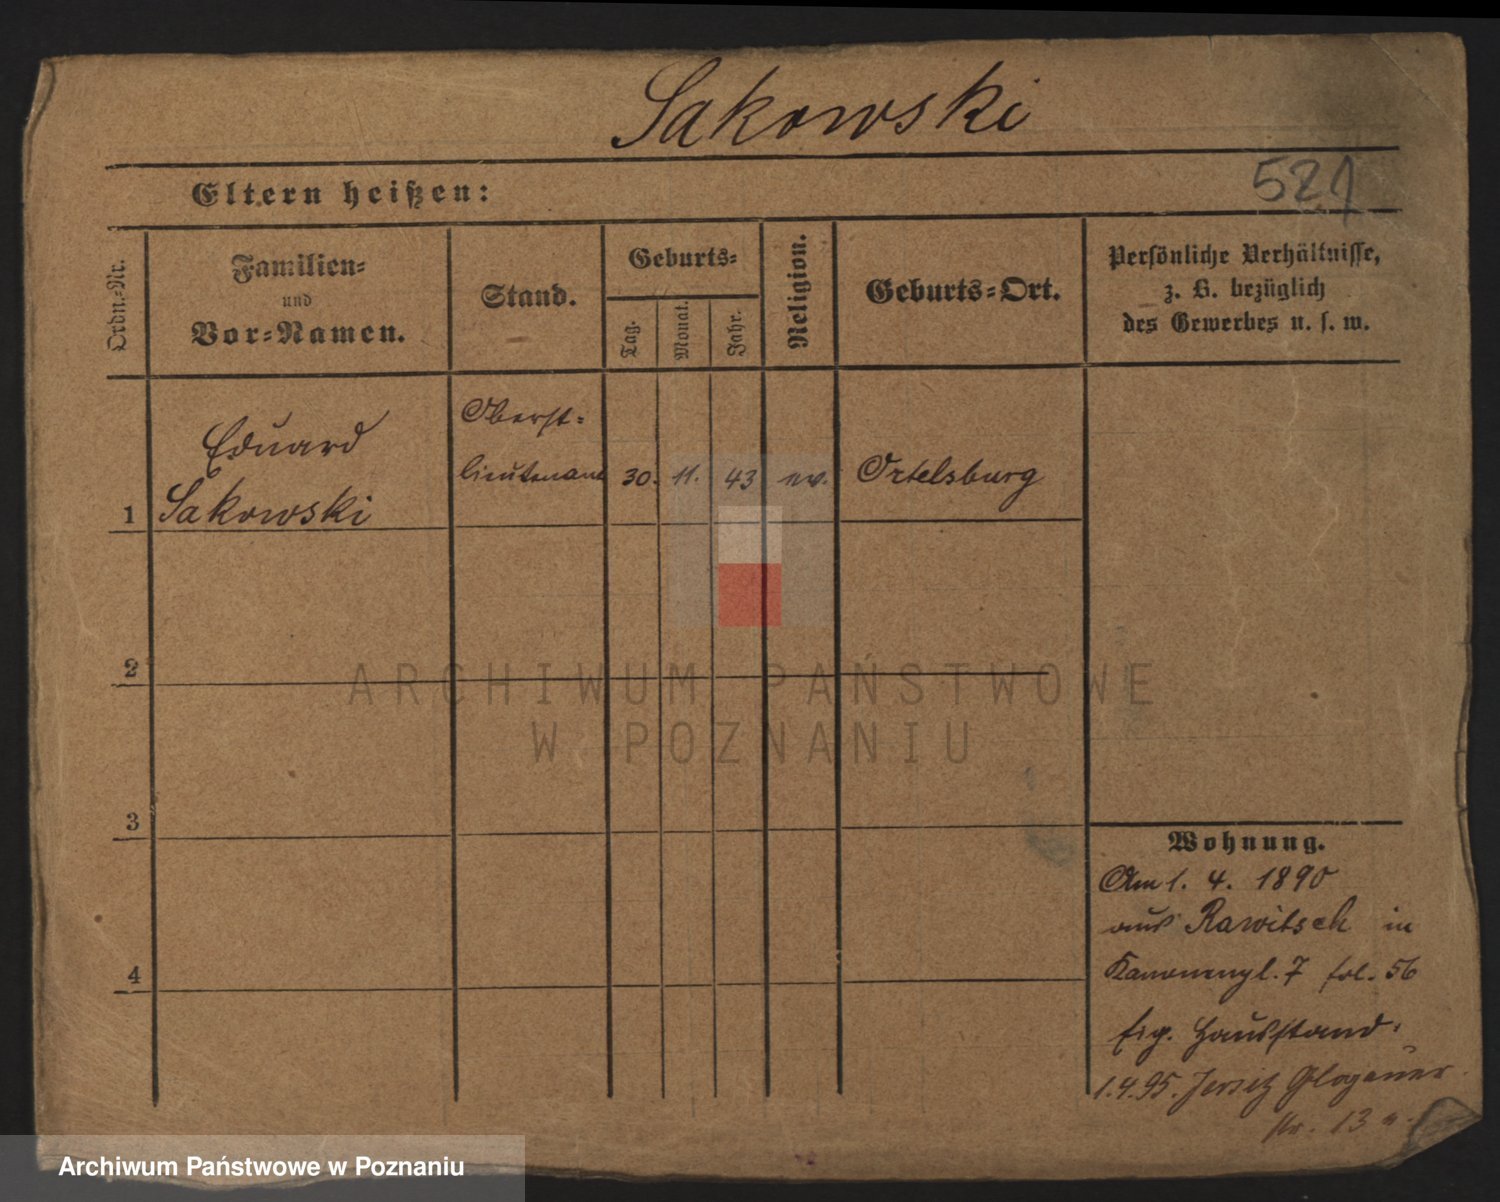 Sakowski
521
Eltern heißen:
Ordn.-Nr.
Familien-
und
Vor-Namen.
Stand.
Geburts-
Tag.
Monat.
Jahr.
Religion.
Geburts-Ort.
Persönliche Verhältnisse,
z. B. bezüglich
des Gewerbes u. s. w.
1
Eduard
Sakowski
Oberst-
lieutenant
30.
11.
43
ev.
Ortelsburg
2
3
4
Wohnung.
Am 1. 4. 1890
aus Rawitsch in
Kanonenpl. 7 fol. 56
Eig. Hausstand.
1.4.95. Jersitz Glogauer
Str. 13 a.
ARCHIWUM PAŃSTWOWE
W POZNANIU
Archiwum Państwowe w Poznaniu